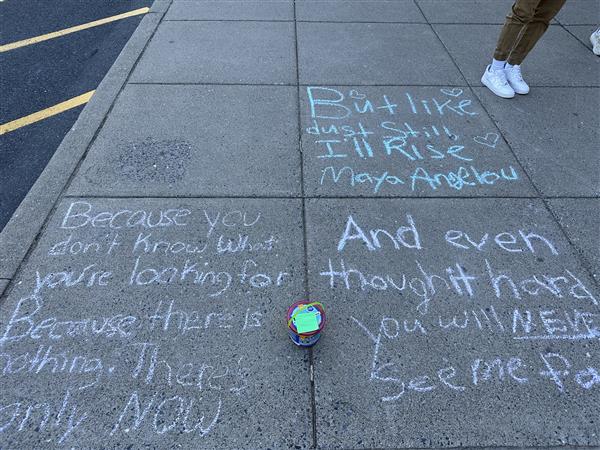 But like
dust Still
I'll Rise
Maya Angelou
Because you
don't know what
you're looking for
Because there is
nothing. There's
only NOW
And even
though it hard
you will NEVE
See me fa